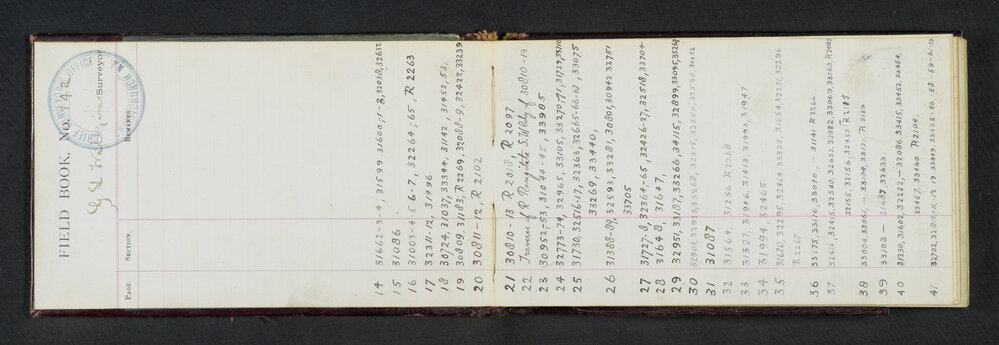 FIELD BOOK, No. 42
Surveyor
CHIEF SURVEYOR'S OFFICE
CHRISTCHURCH N.Z.
PAGE. SECTION. REMARKS.
14 31662-3-4, 31599 31600,-1-2, 32028, 32632
15 31086
16 31003-4-5-6-7, 32264,-65, R 2263
17 32311-12, 31496
18 30724, 31037, 33344, 31142, 31452, 53,
19 30809, 31183, R 2269, 32088-9, 32422, 33239
20 30811-12, R 2102
21 30810-13 R 2081, R 2097
22 Traverse of R Rangitata S. Wely of 30810-13
23 30952-53, 31044-45, 33985
24 32773-74, 32965, 33105, 33270,-71, 31729, 33102
25 31730, 32516-17, 32363, 32665-66-67, 33075
33269, 33440,
26 31388-89, 32593, 33281, 30801, 30942, 32751
33705
27 31727-8, 32364-65, 32426-27, 32518, 33704
28 31648, 31647,
29 32951, 33187, 33266, 34115, 32899, 33095, 33267
30 32901, 32923, 33268, 32515, 32550, 32595, 32192
31 31087
32 31564, 31256 R 2268
33 31327, 31946, 31413, 31993, 31947
34 31994 32465
35 31670, 32295, 32464, 33525, 31654, 32271, 32296
R 2267
36 33175, 33176, 33070,-31141, R 2266
37 32414, 32415, 32540, 32652, 32822, 33069, 33163, R 2065
32155, 32156, 32453 R 2105
38 33004, 33061,- 33104, 33171, R 2129
39 33103- 31687, 32633
40 31230, 31602, 32222,-32086, 33415, 33452, 33454,
33457, 33460 R 2104.
41 32702, 32810-11, 12-13, 33349, 33455-56-58-59-61-53